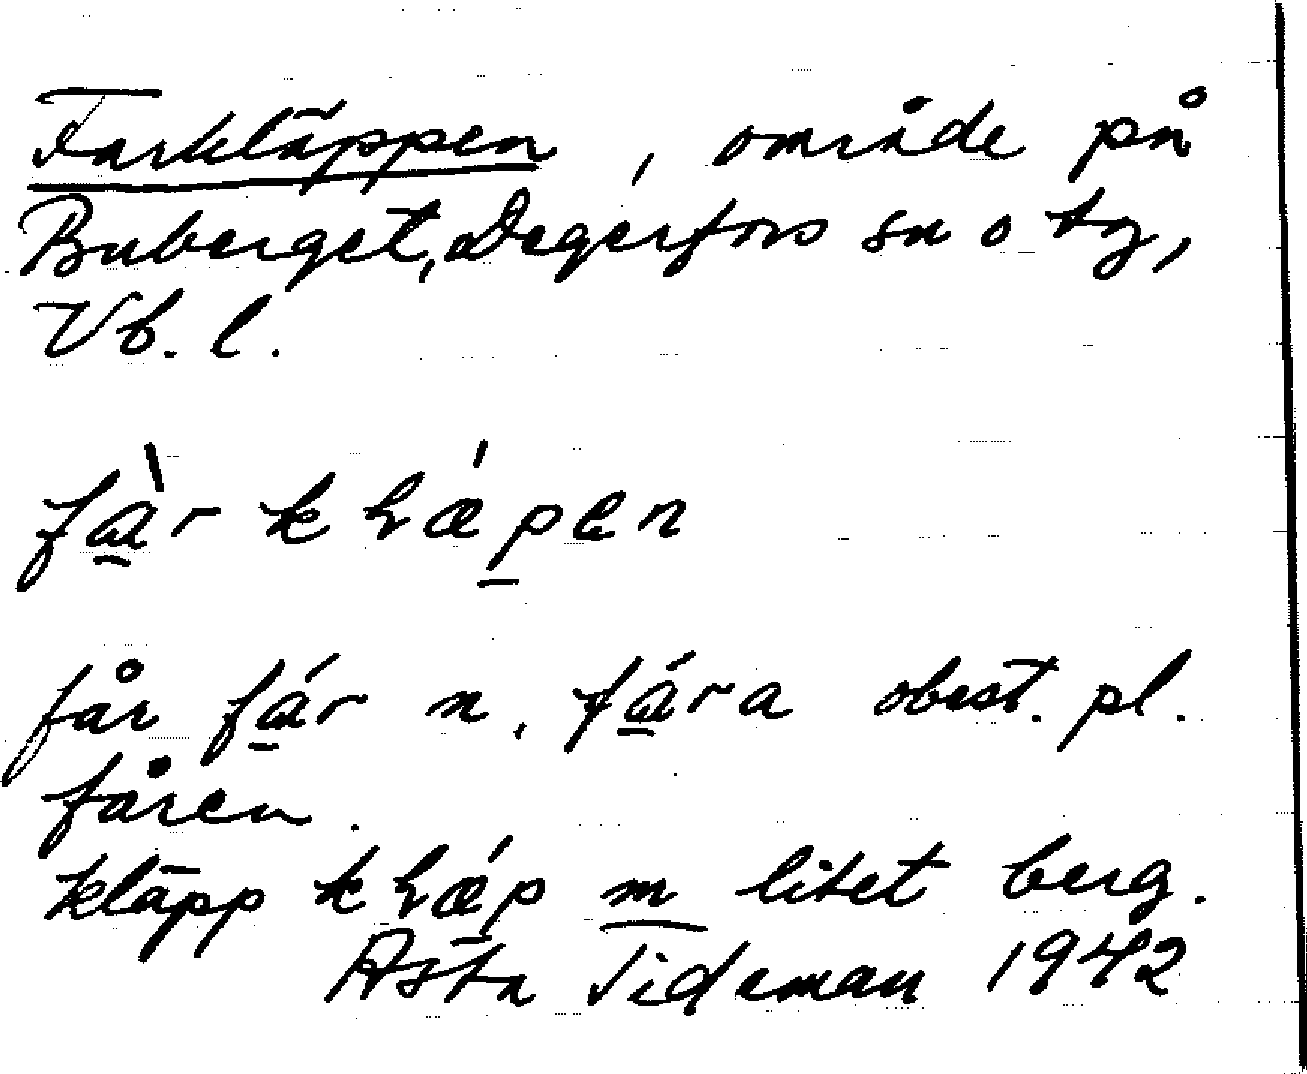 Farkläppen, område på
Buberget, Degerfors sn o tg,
Vb. l.
fàr kɭǽpen
får fár n. fára obest. pl.
fåren.
kläpp kɭǽp m litet berg.
Asta Tideman 1942